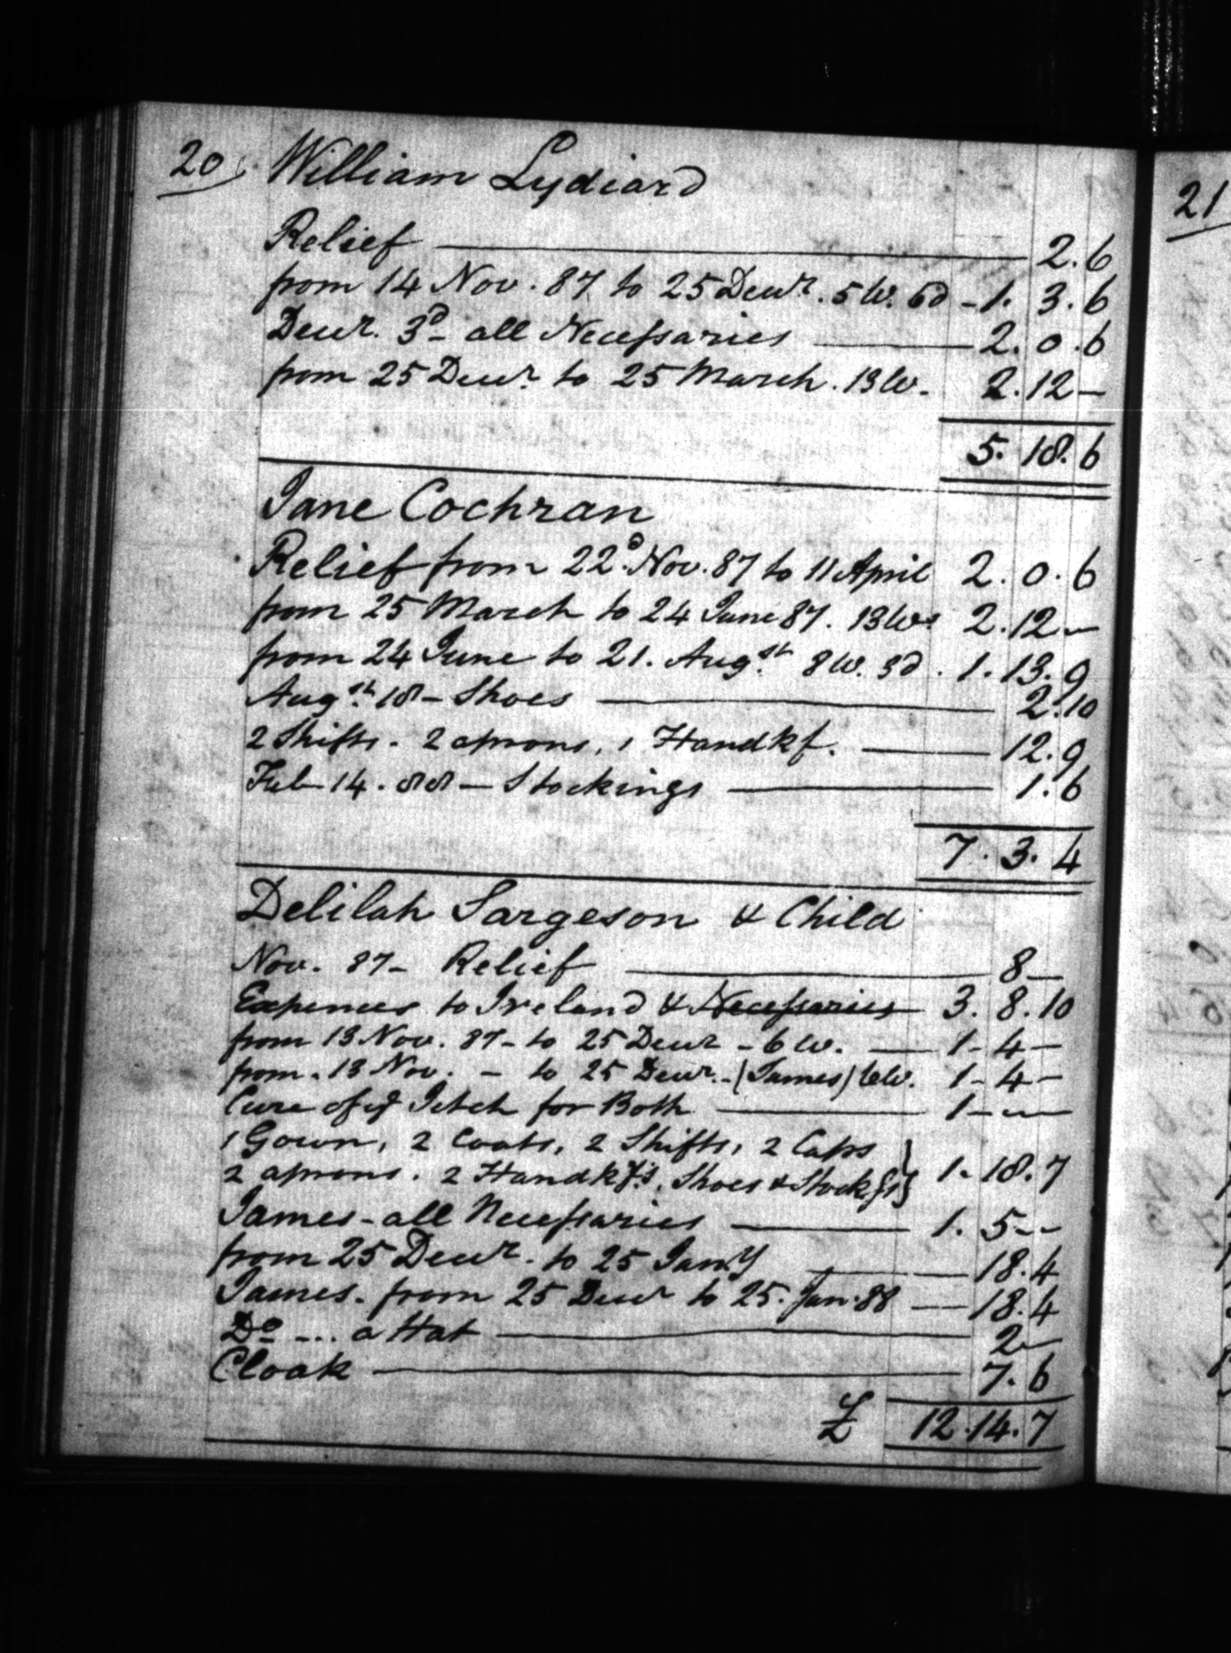 20. William Lydiard
Relief 2.6
from 14 Nov. 87 to 25 Decr. 5W. 6d - 1. 3. 6
Decr. 3d - all Necessaries 2. 0. 6
from 25 Decr. to 25 March. 13W. 2. 12 -
5. 18. 6
Jane Cochran
Relief from 22d. Nov. 87 to 11 April 2. 0. 6
from 25 March to 24 June 87. 13Ws 2. 12 -
from 24 June to 21. Augst. 8W. 3d. 1. 13. 9
Augst. 18 - Shoes 2. 10
2 Shifts. 2 aprons, 1 Handkf. 12. 9
Feb 14. 88 - Stockings 1. 6
7. 3. 4
Delilah Sargeson & Child
Nov. 87 - Relief 8 -
Expences to Ireland & Necessaries 3. 8. 10
from 13 Nov. 87 - to 25 Decr - 6W. 1 - 4 -
from. 13 Nov. - to 25 Decr. - (James) 6W. 1 - 4 -
Cure of ye Itch for Both 1 - -
1 Gown, 2 Coats, 2 Shifts, 2 Caps
2 aprons. 2 Handkfs, Shoes & Stockgs 1. 18. 7
James - all Necessaries 1. 5 -
from 25 Decr. to 25 Jany 18. 4
James. from 25 Decr to 25. Jan. 88 18. 4
Do ... a Hat 2 -
Cloak 7. 6
£ 12. 14. 7
21